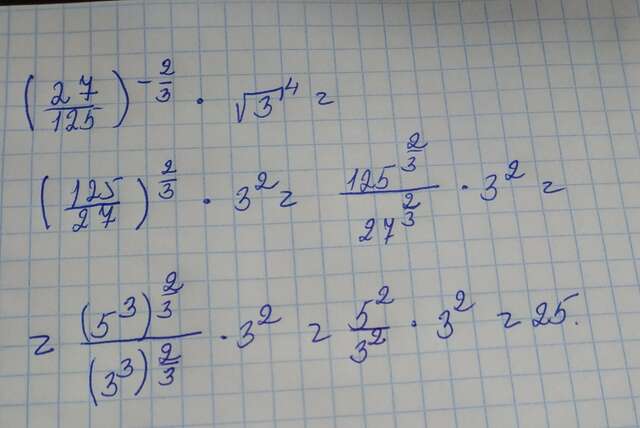 (27/125)^(-2/3) · √3^4 =
(125/27)^(2/3) · 3^2 = 125^(2/3)/27^(2/3) · 3^2 =
= (5^3)^(2/3)/(3^3)^(2/3) · 3^2 = 5^2/3^2 · 3^2 = 25.